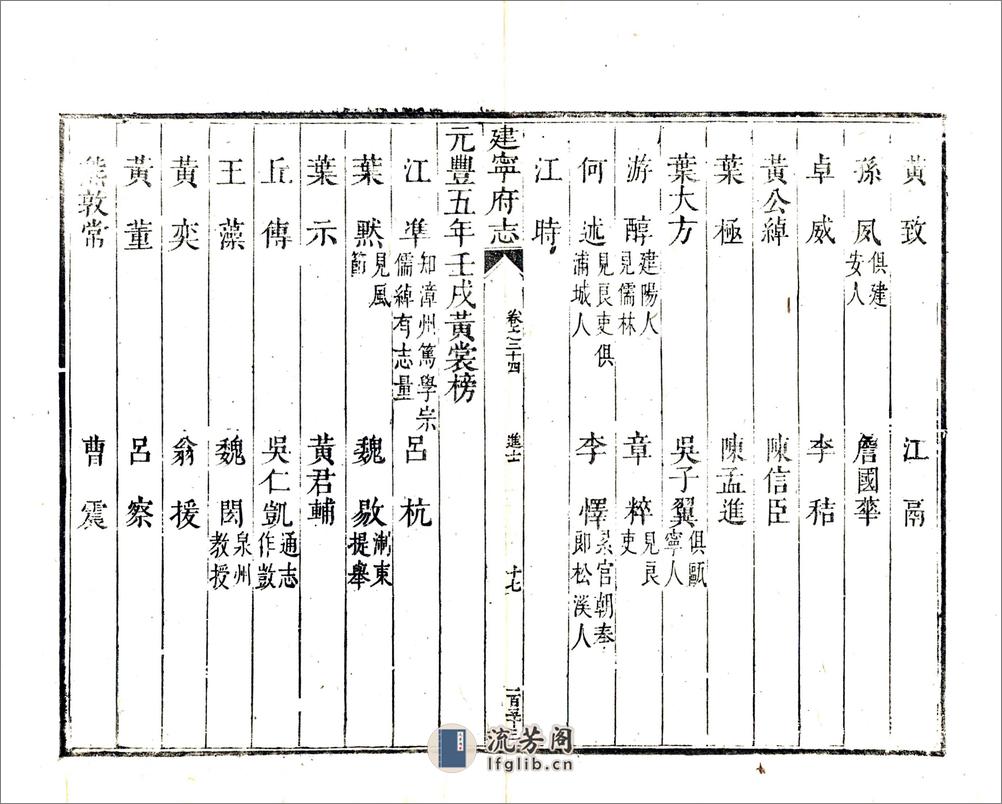 黃致　江鬲
孫夙俱建安人　詹國華
卓威　李秸
黃公綽　陳信臣
葉極　陳孟進
葉大方　吳子翼俱甌寧人
游醇建陽人見儒林　章粹見良吏
何述見良吏俱浦城人　李懌累官朝奉郎松溪人
江時
建寧府志　卷之三十四　進士　十七
元豐五年壬戌黃裳榜
江準知漳州篤學崇儒綽有志量　呂杭
葉默見風節　魏敭浙東提舉
葉示　黃君輔
丘傳　吳仁凱通志作敳
王藻　魏閎泉州教授
黃奕　翁援
黃董　呂察
熊敦常　曹震
流芳阁
lfglib.cn